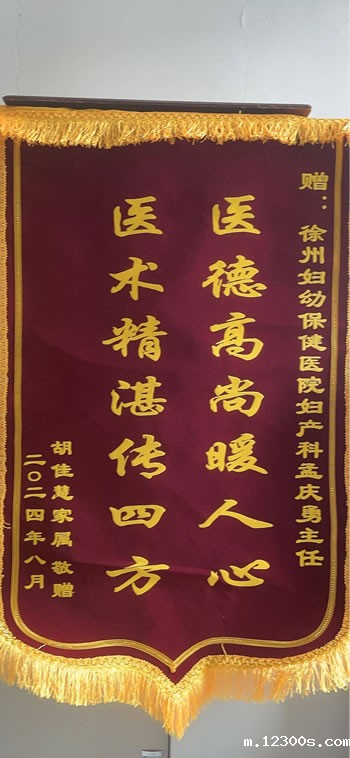 赠：徐州妇幼保健医院妇产科孟庆勇主任
医德高尚暖人心
医术精湛传四方
胡佳慧家属 敬赠
二〇二四年八月
m.12300s.com